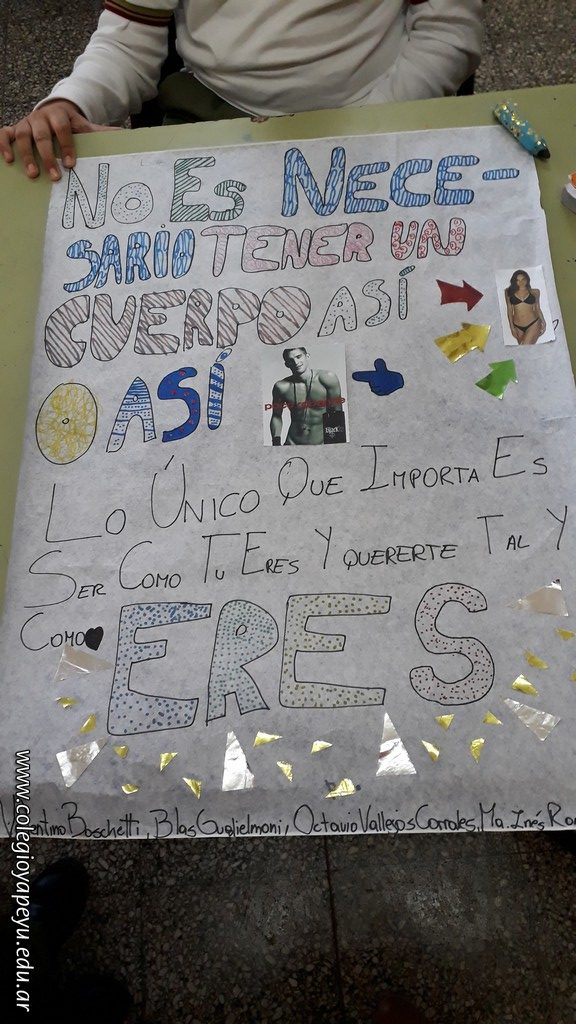 No Es NECE-
SARIO TENER UN
CUERPO ASÍ
O ASÍ
Lo Único Que Importa Es
Ser Como Tu Eres Y quererte Tal Y
Como
ERES
Valentino Boschetti, Blas Guglielmoni, Octavio Vallejos Corrales, Ma. Inés
www.colegioyapeyu.edu.ar